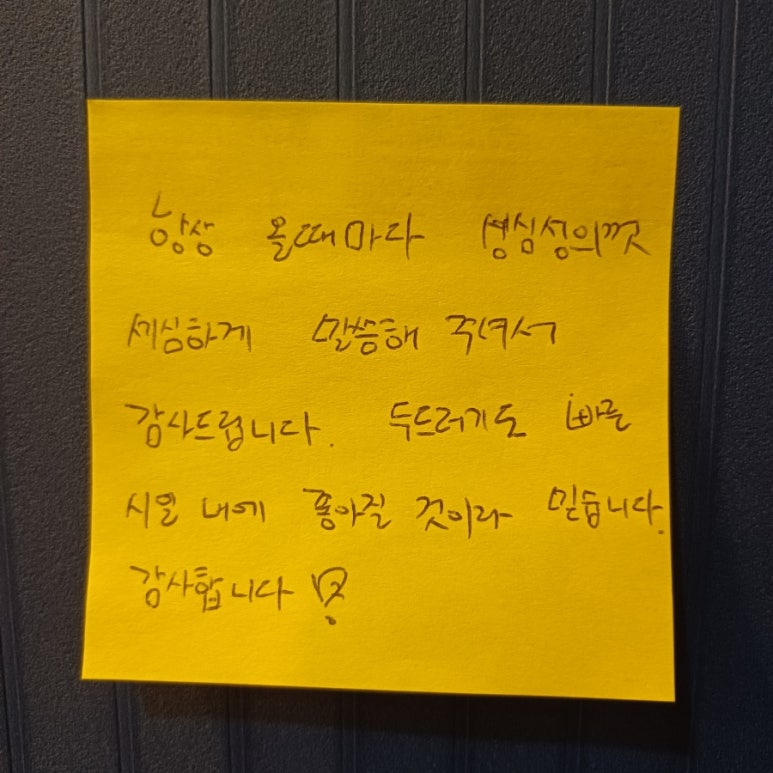 항상 올때마다 성심성의껏
세심하게 말씀해 주셔서
감사드립니다. 두드러기도 빠른
시일 내에 좋아질 것이라 믿습니다.
감사합니다